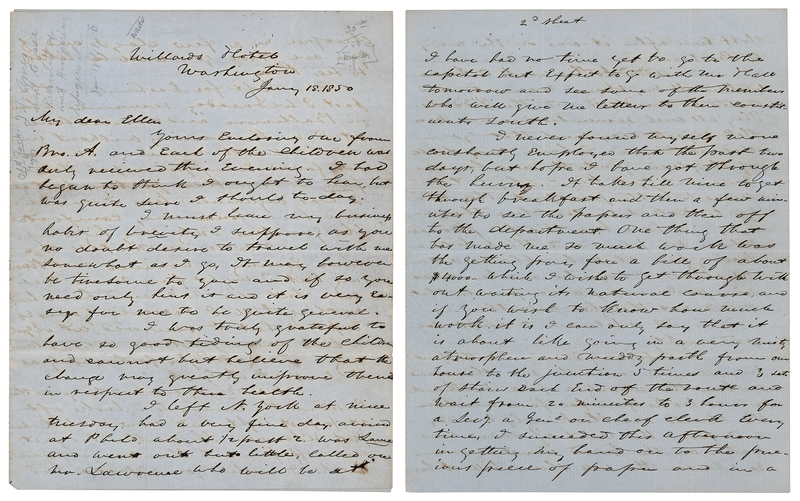 Willards Hotel
Washington
Jany 15. 1850
My dear Ellen
Yours Enclosing one from
Bro. A. and Each of the Children was
duly received this Evening. I had
began to think I ought to hear, but
was quite sure I should to-day.
I must leave my business
habit of brevity, I suppose, as you
no doubt desire to travel with me
somewhat as I go, It may however
be tiresome to you and if so you
need only hint it and it is very Ea-
sy for me to be quite general.
I was truly grateful to
have so good tidings of the Children
and cannot but believe that the
change may greatly improve them
in respect to their health.
I left N. York at nine
tuesday, had a very fine day, arrived
at Phila about 1/2 past 2. was Lame
and went out but little, called on
Mr. Lawrence who will be at
2d sheet
I have had no time yet to go to the
capitol but Expect to go with Mr Hall
tomorrow and see some of the members
who will give me letters to their constit-
uents south.
I never found myself more
constantly Employed than the past two
days, but hope I have got through
the hurry. It takes till nine to get
through breakfast and then a few min-
utes to see the papers and then off
to the department One thing that
has made me so much work was
the getting pay for a bill of about
$4000. which I wish to get through with
out waiting its natural course, and
if you wish to know how much
work it is I can only say that it
is about like going in a very misty
atmosphere and muddy path from our
house to the junction 5 times and 3 sets
of stairs Each End of the route and
wait from 20 minutes to 3 hours for
a Secy a Genl or chief clerk Every
time, I succeeded this afternoon
in getting my hand on to the prec-
ious piece of paper and in a